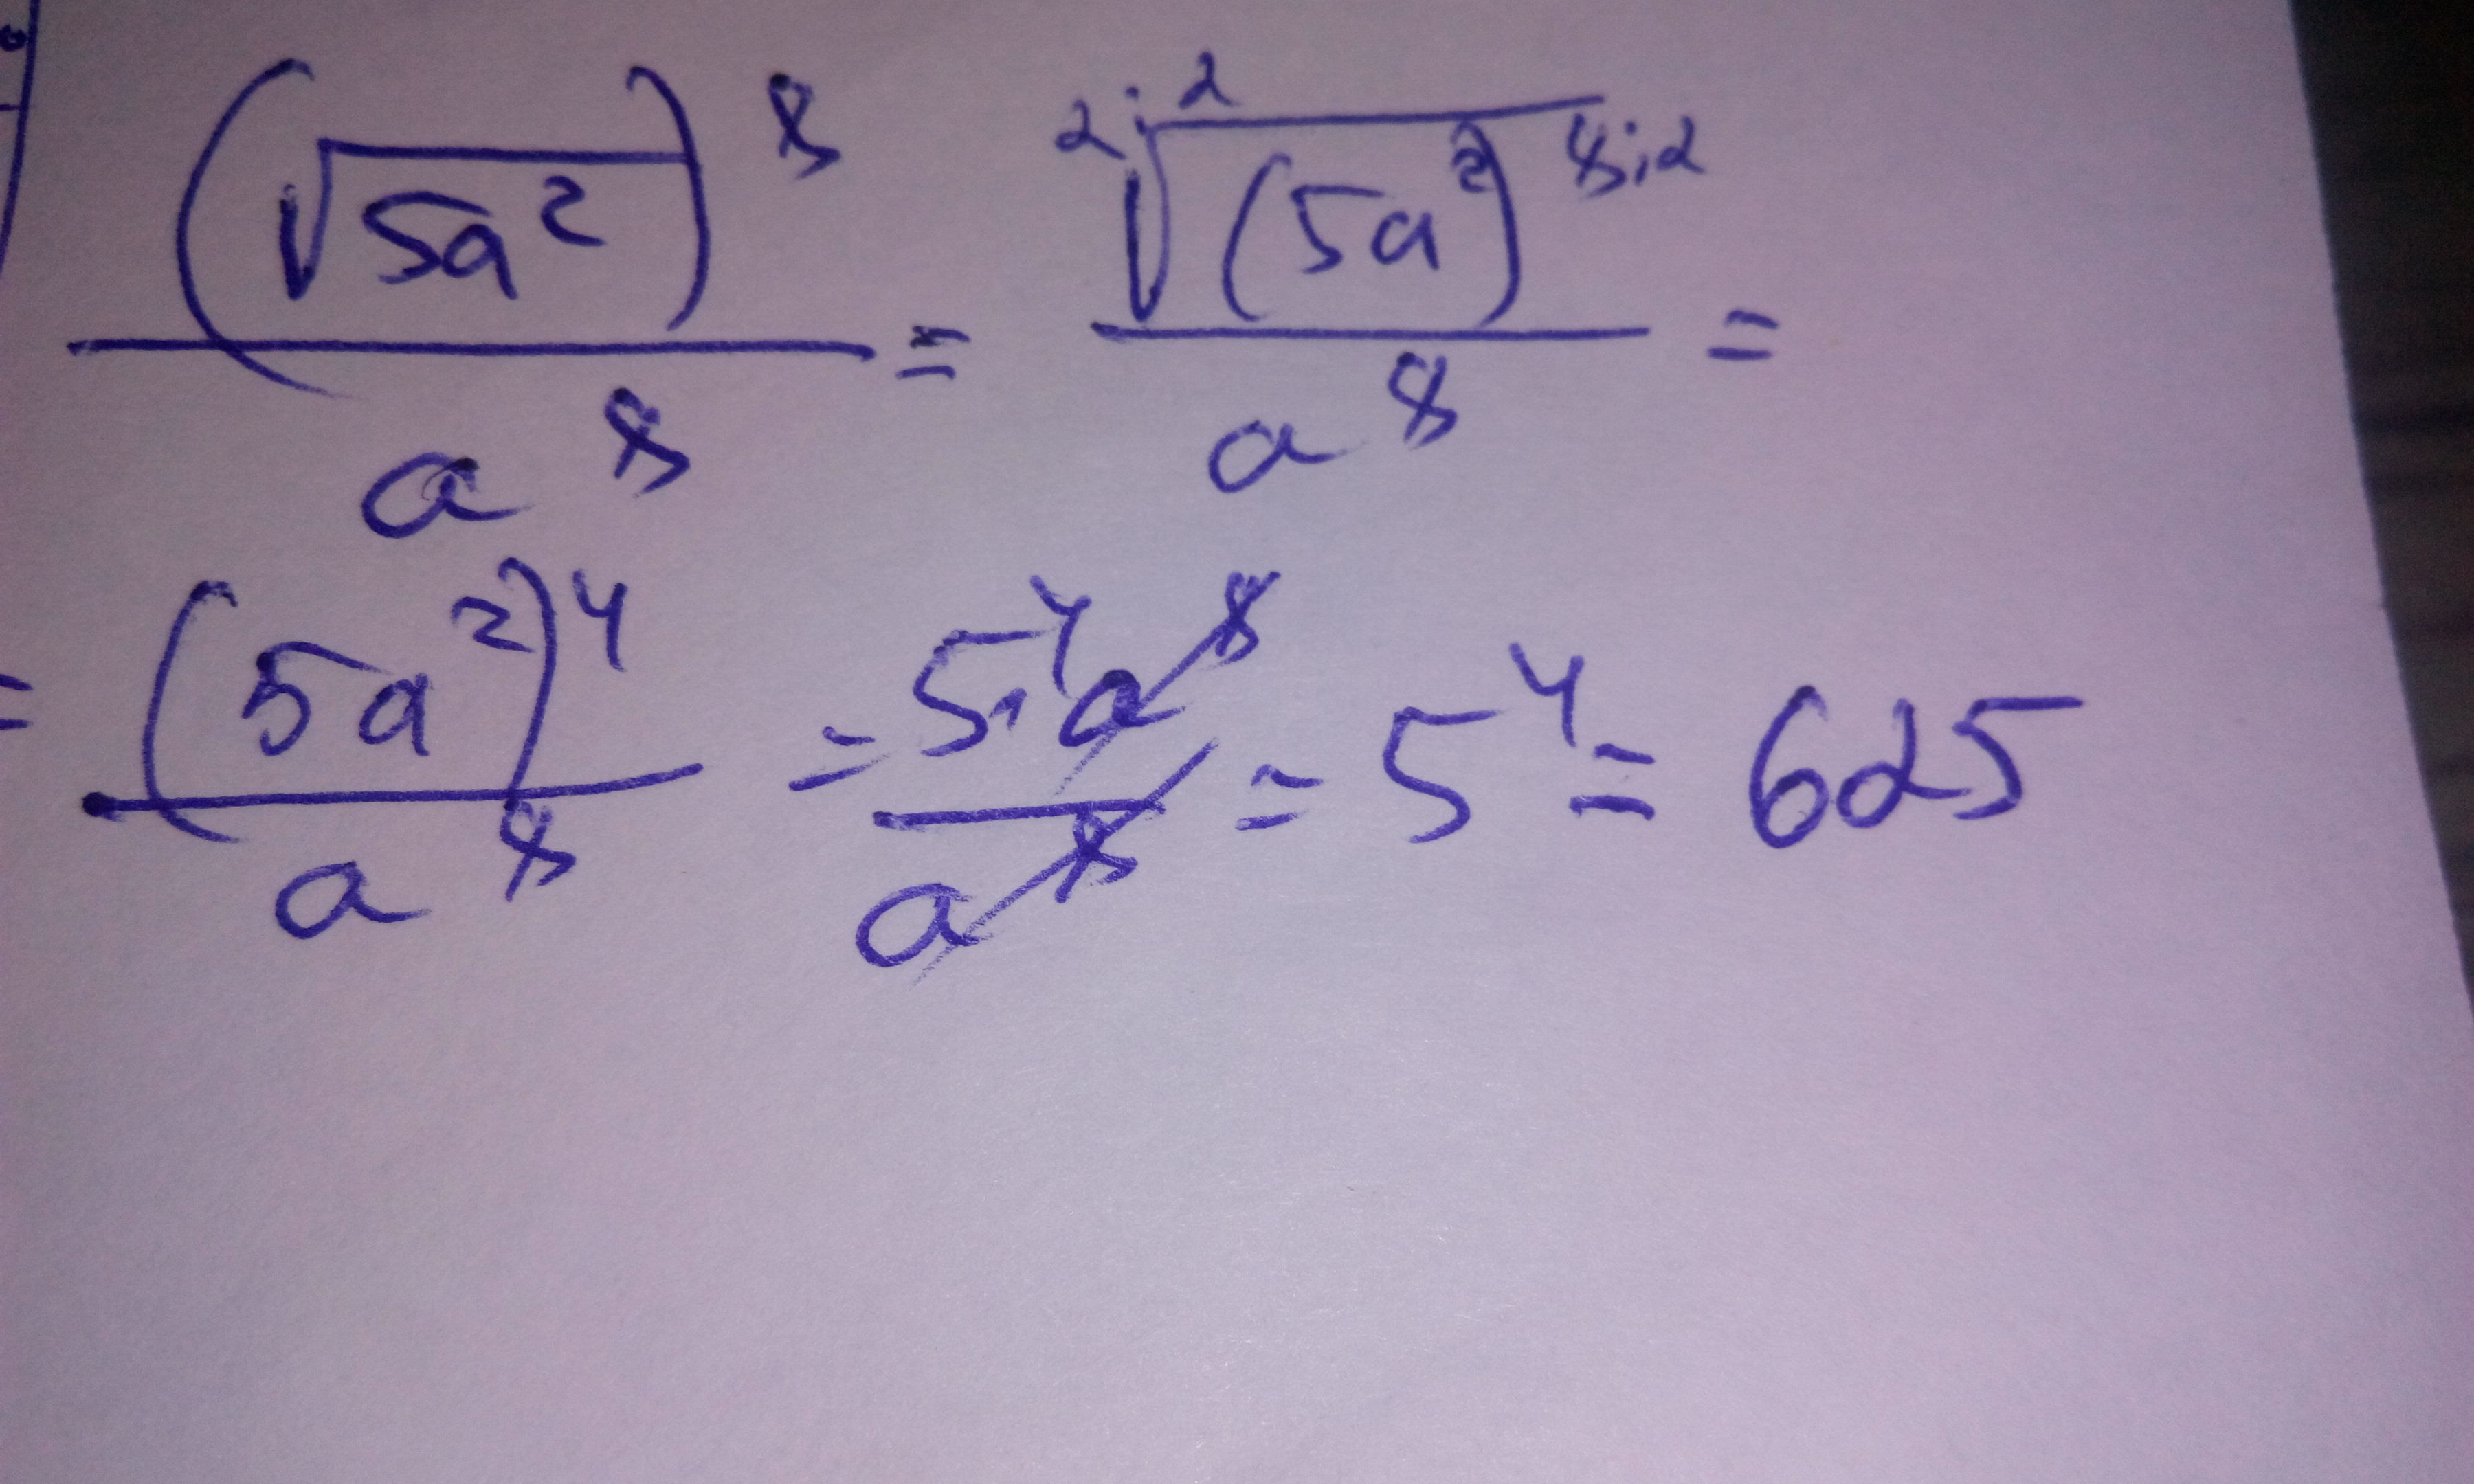 (√5a²)⁸ / a⁸ = ²:²√(5a²)⁸:² / a⁸ =
= (5a²)⁴ / a⁸ = 5⁴·a⁸ / a⁸ = 5⁴ = 625